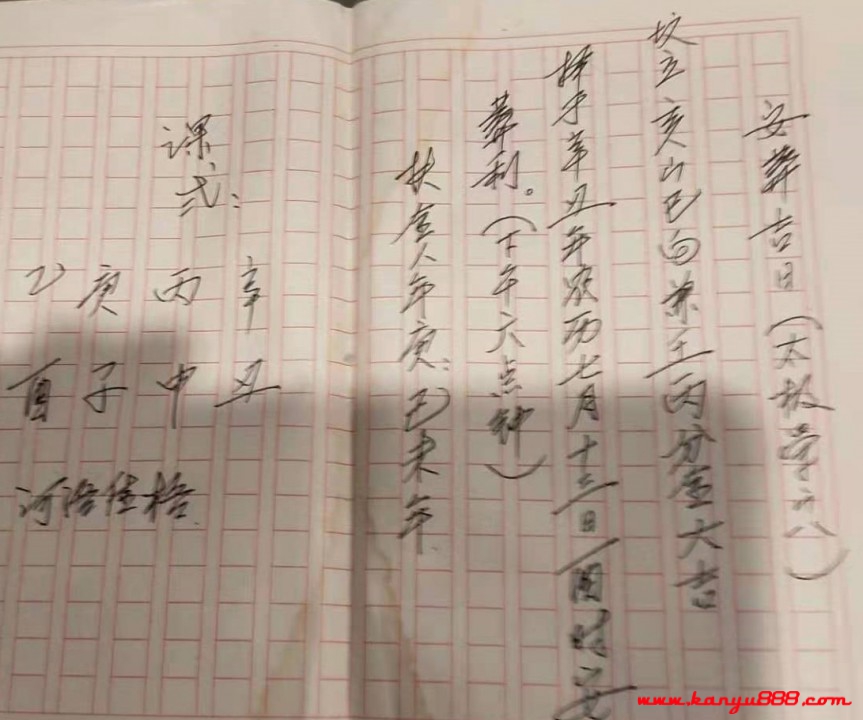 安葬吉日（太极堂廿八）
坟立亥山巳向兼壬丙分金大吉
择于辛丑年农历七月十三日酉时安
葬利。（下午六点钟）
扶金人年庚：己未年
课式：
辛 丙 庚 乙
丑 申 子 酉
河洛佳格
www.kanyu888.com